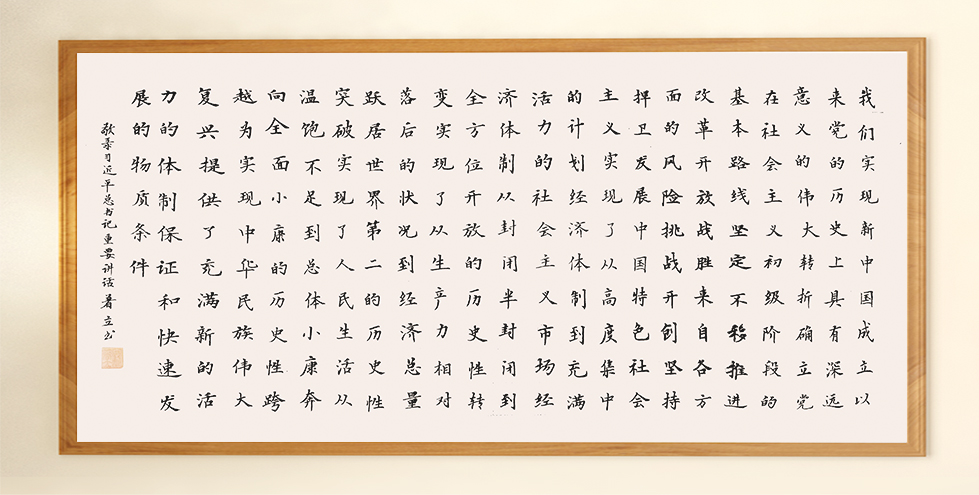 我们实现新中国成立以
来党的历史上具有深远
意义的伟大转折确立党
在社会主义初级阶段的
基本路线坚定不移推进
改革开放战胜来自各方
面的风险挑战开创坚持
捍卫发展中国特色社会
主义实现了从高度集中
的计划经济体制到充满
活力的社会主义市场经
济体制从封闭半封闭到
全方位开放的历史性转
变实现了从生产力相对
落后的状况到经济总量
跃居世界第二的历史性
突破实现了人民生活从
温饱不足到总体小康奔
向全面小康的历史性跨
越为实现中华民族伟大
复兴提供了充满新的活
力的体制保证和快速发
展的物质条件
敬录习近平总书记重要讲话 著立书